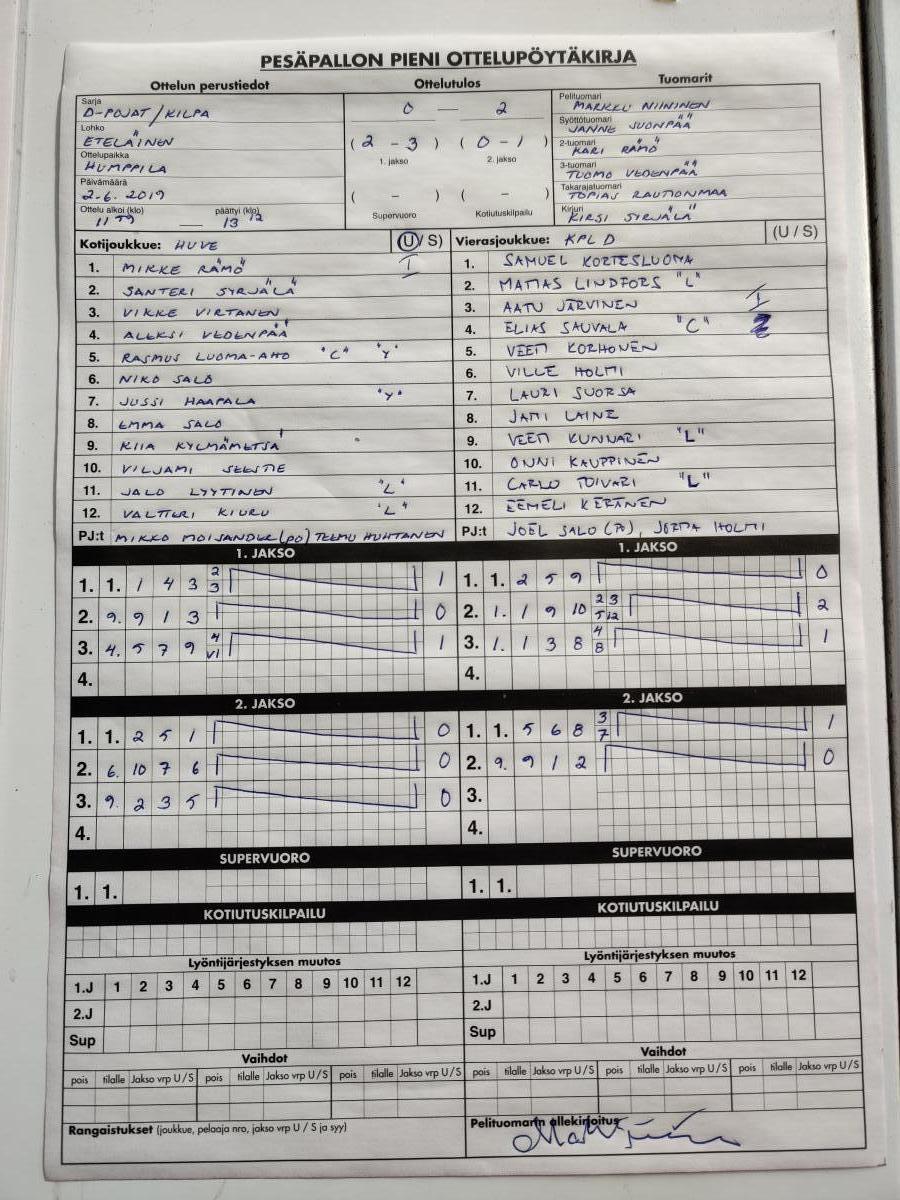 PESÄPALLON PIENI OTTELUPÖYTÄKIRJA
Ottelun perustiedot
Sarja
D-POJAT/KILPA
Lohko
ETELÄINEN
Ottelupaikka
HUMPPILA
Päivämäärä
2.6.2019
Ottelu alkoi (klo) päättyi (klo)
11 — 13 12
Ottelutulos
0 — 2
( 2 - 3 ) ( 0 - 1 )
1. jakso 2. jakso
( - ) ( - )
Supervuoro Kotiutuskilpailu
Tuomarit
Pelituomari
MARKKU NIININEN
Syöttötuomari
JANNE SUONPÄÄ
2-tuomari
KARI RÄMÖ
3-tuomari
TUOMO VEDENPÄÄ
Takarajatuomari
TOPIAS RAUTIONMAA
Kirjuri
KIRSI SYRJÄLÄ
Kotijoukkue: HUVE (U/S)
1. MIKKE RÄMÖ I
2. SANTERI SYRJÄLÄ
3. VIKKE VIRTANEN
4. ALEKSI VEDENPÄÄ
5. RASMUS LUOMA-AHO "C" "Y"
6. NIKO SALO
7. JUSSI HAAPALA "Y"
8. EMMA SALO
9. KIIA KYLMÄMETSÄ
10. VILJAMI SEESTIE
11. JALO LYYTINEN "L"
12. VALTTERI KIURU "L"
PJ:t MIKKO MOISANDER (PO) TEEMU HUHTANEN
Vierasjoukkue: KPL D (U / S)
1. SAMUEL KORTESLUOMA
2. MATIAS LINDFORS "L"
3. AATU JÄRVINEN I
4. ELIAS SAUVALA "C" 2
5. VEETI KORHONEN
6. VILLE HOLMI
7. LAURI SUORSA
8. JAMI LAINE
9. VEETI KUNNARI "L"
10. ONNI KAUPPINEN
11. CARLO TOIVARI "L"
12. EEMELI KERÄNEN
PJ:t JOEL SALO (PJ), JORMA HOLMI
1. JAKSO
1. 1. 1 4 3 2 3 1
2. 9. 9 1 3 0
3. 4. 5 7 9 4 V1 1
4.
2. JAKSO
1. 1. 2 5 1 0
2. 6. 10 7 6 0
3. 9. 2 3 5 0
4.
SUPERVUORO
1. 1.
KOTIUTUSKILPAILU
1. JAKSO
1. 1. 2 5 9 0
2. 1. 1 9 10 2 3 5 12 2
3. 1. 1 3 8 4 8 1
4.
2. JAKSO
1. 1. 5 6 8 3 7 1
2. 9. 9 1 2 0
3.
4.
SUPERVUORO
1. 1.
KOTIUTUSKILPAILU
Lyöntijärjestyksen muutos
1.J 1 2 3 4 5 6 7 8 9 10 11 12
2.J
Sup
Lyöntijärjestyksen muutos
1.J 1 2 3 4 5 6 7 8 9 10 11 12
2.J
Sup
Vaihdot
pois tilalle Jakso vrp U/S pois tilalle Jakso vrp U/S pois tilalle Jakso vrp U/S
Vaihdot
pois tilalle Jakso vrp U/S pois tilalle Jakso vrp U/S pois tilalle Jakso vrp U/S
Rangaistukset (joukkue, pelaaja nro, jakso vrp U / S ja syy)
Pelituomarin allekirjoitus